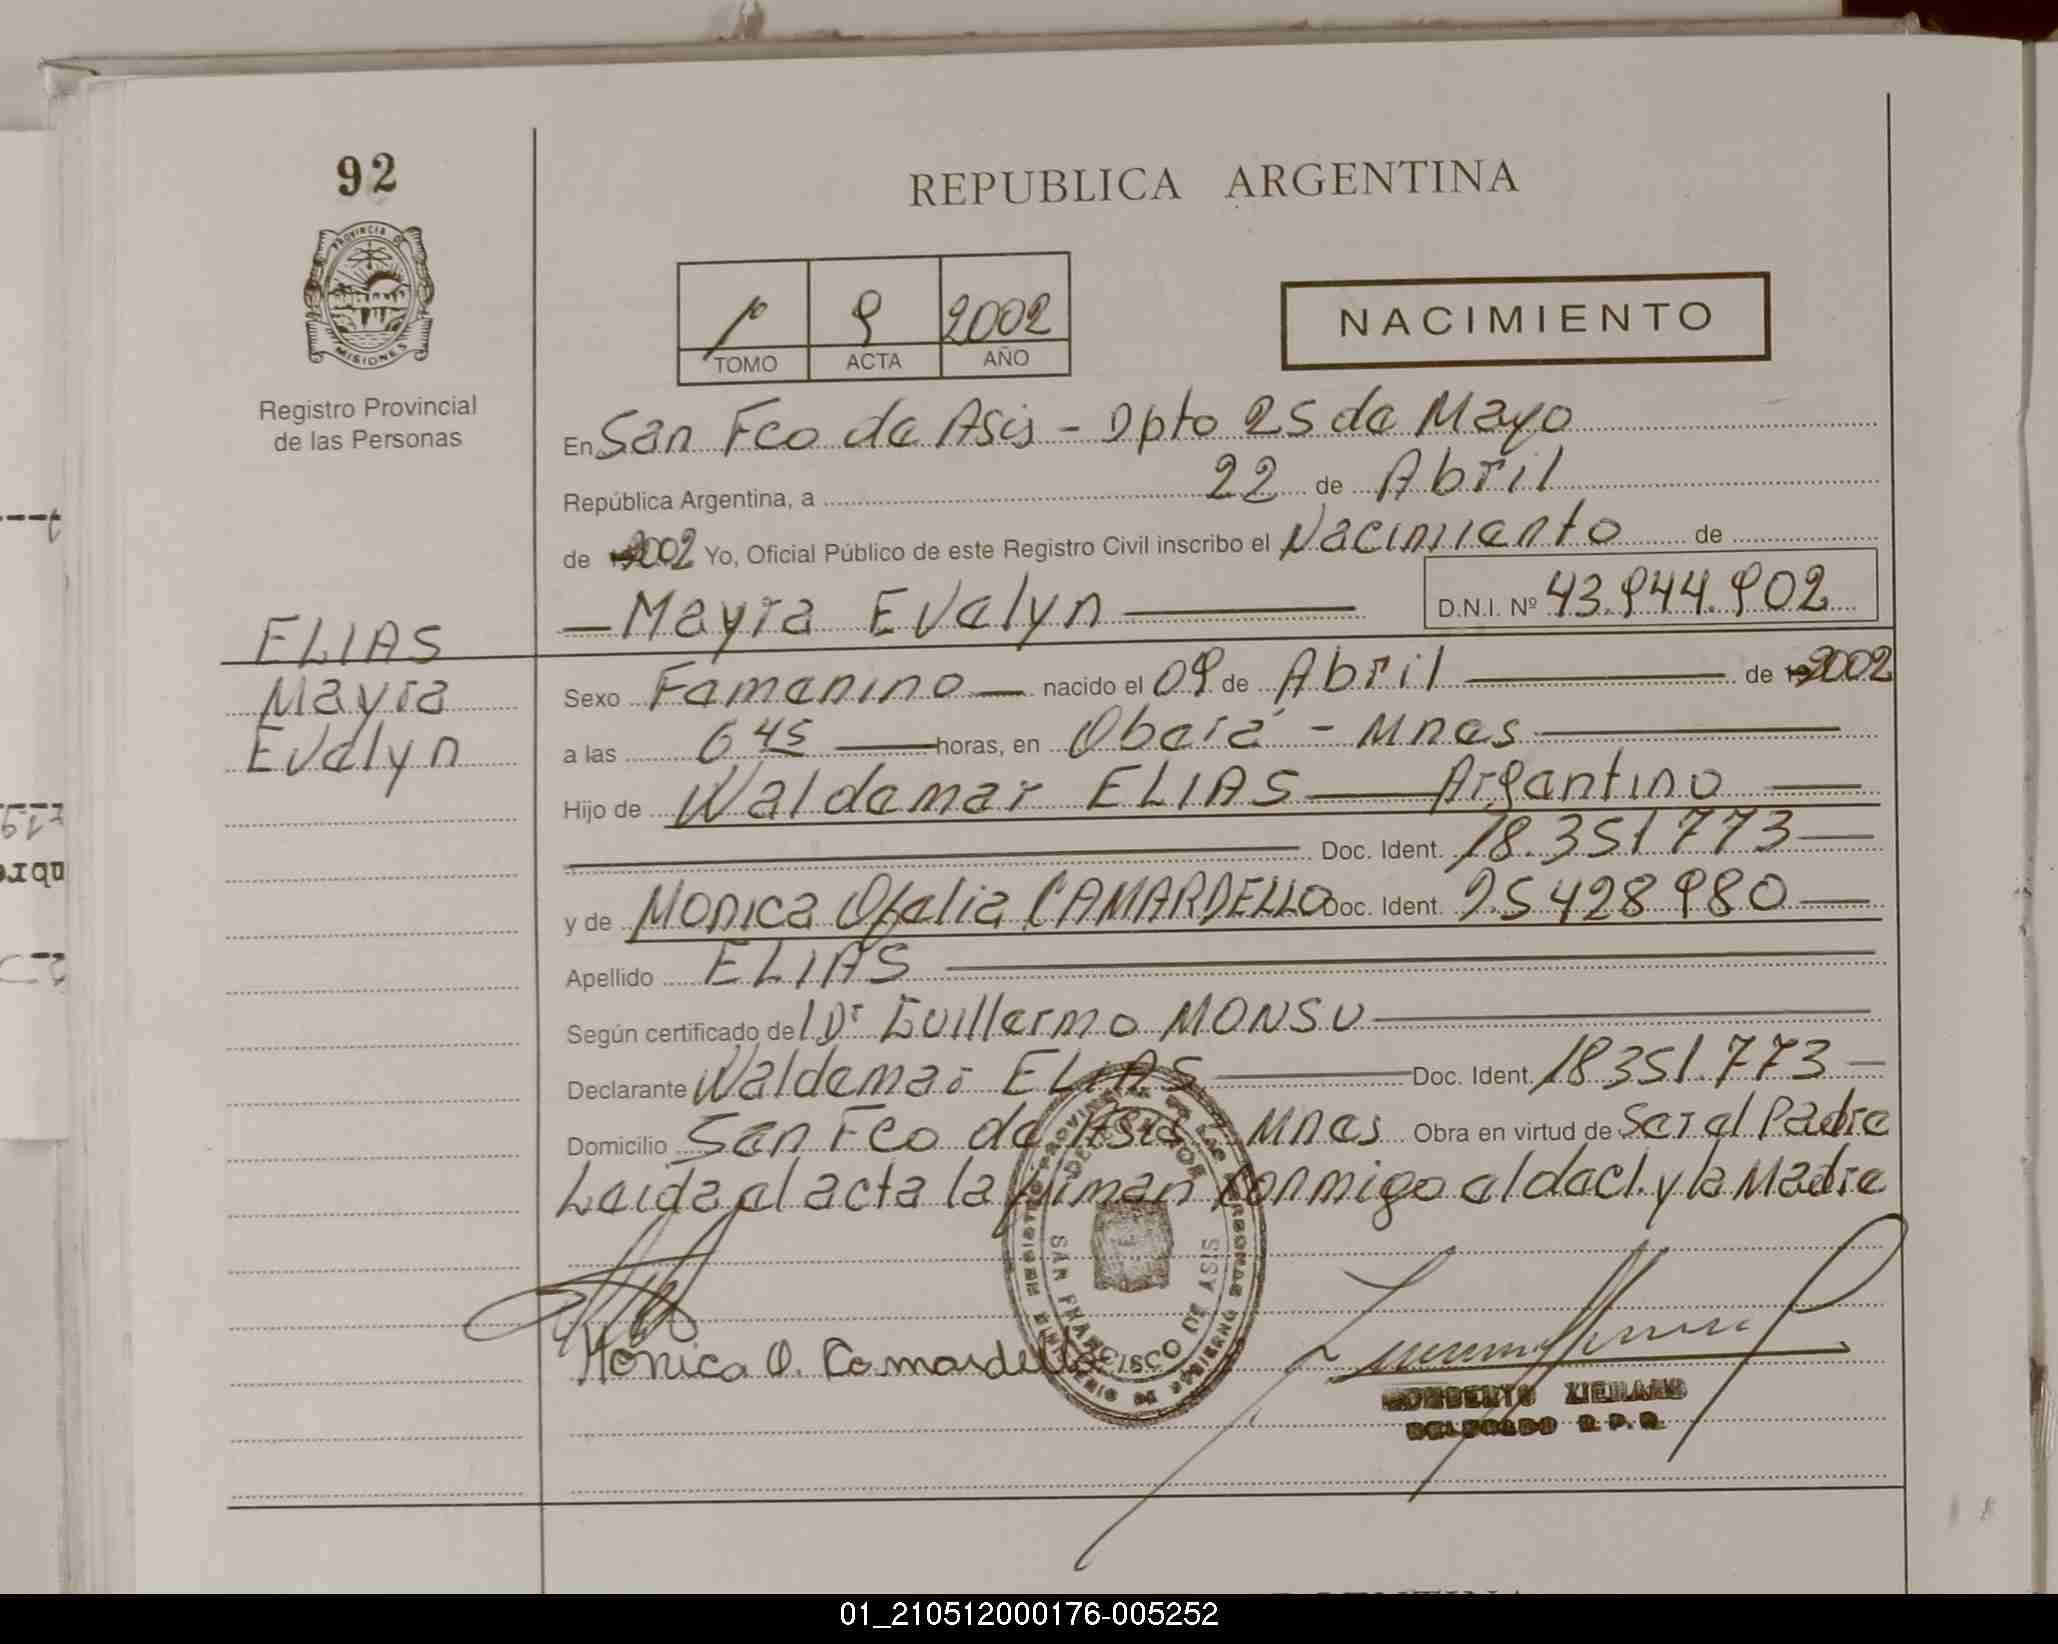 92
REPUBLICA ARGENTINA
PROVINCIA DE
MISIONES
1º 9 2002
TOMO ACTA AÑO
NACIMIENTO
Registro Provincial
de las Personas
En San Fco de Asis - Dpto 25 de Mayo
República Argentina, a 22 de Abril
de 2002 Yo, Oficial Público de este Registro Civil inscribo el Nacimiento de
Mayra Evelyn D.N.I. Nº 43.944.902
ELIAS
Mayra
Evelyn
Sexo Femenino nacido el 09 de Abril de 2002
a las 6 45 horas, en Oberá - Mnes
Hijo de Waldemar ELIAS Argentino
Doc. Ident. 18.351773
y de Monica Ofelia CAMARDELLO Doc. Ident. 25428980
Apellido ELIAS
Según certificado del Dr Guillermo MONSU
Declarante Waldemar ELIAS Doc. Ident. 18351.773
Domicilio San Fco de Asis - Mnes Obra en virtud de Ser el Padre
Leida el acta la firman conmigo el decl. y la Madre
SAN FRANCISCO DE ASIS
Mónica O. Camardello
R.P.
01_210512000176-005252